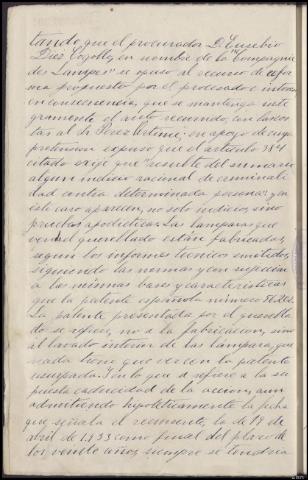 tando que el procurador D. Eusebio
Diez Cogolles, en nombre de la "Compagnie
des Lampes" se opuso al recurso de refor-
ma propuesto por el procesado e interesó
en consecuencia, que se mantenga inte-
gramente el auto recurrido, con las cos-
tas al Sr Perez Gelmi; en apoyo de cuya
pretension expuso que el articulo 384
citado exije que "resulte del sumario
algun indicio racional de criminali-
dad contra determinada persona; y en
este caso aparecen, no solo indicios, sino
pruebas apodicticas. Las lamparas que
vende el querellado están fabricadas,
segun los informes tecnicos emitidos,
siguiendo las normas y con sujecion
a las mismas bases y caracteristicas
que la patente española número 56.262.
La patente presentada por el querella-
do se refiere, no a la fabricacion, sino
al lavado interior de las lámparas, que
nada tiene que ver con la patente
usurpada. En lo que se refiere a la su-
puesta caducidad de la accion, aun
admitiendo hipoteticamente la fecha
que señala el recurrente, la de 19 de
abril de 1.933 como final del plazo de
los veinte años, siempre se tendria